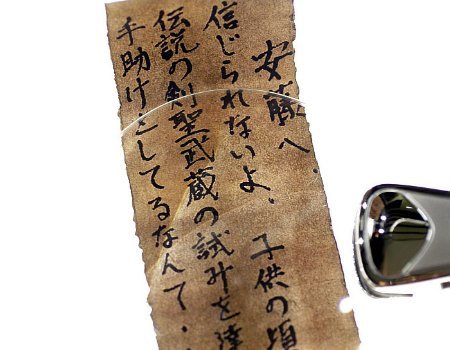 安藤へ.
信じられないよ. 子供の頃
伝説の剣聖武蔵の試みを達
手助けをしてるなんて.